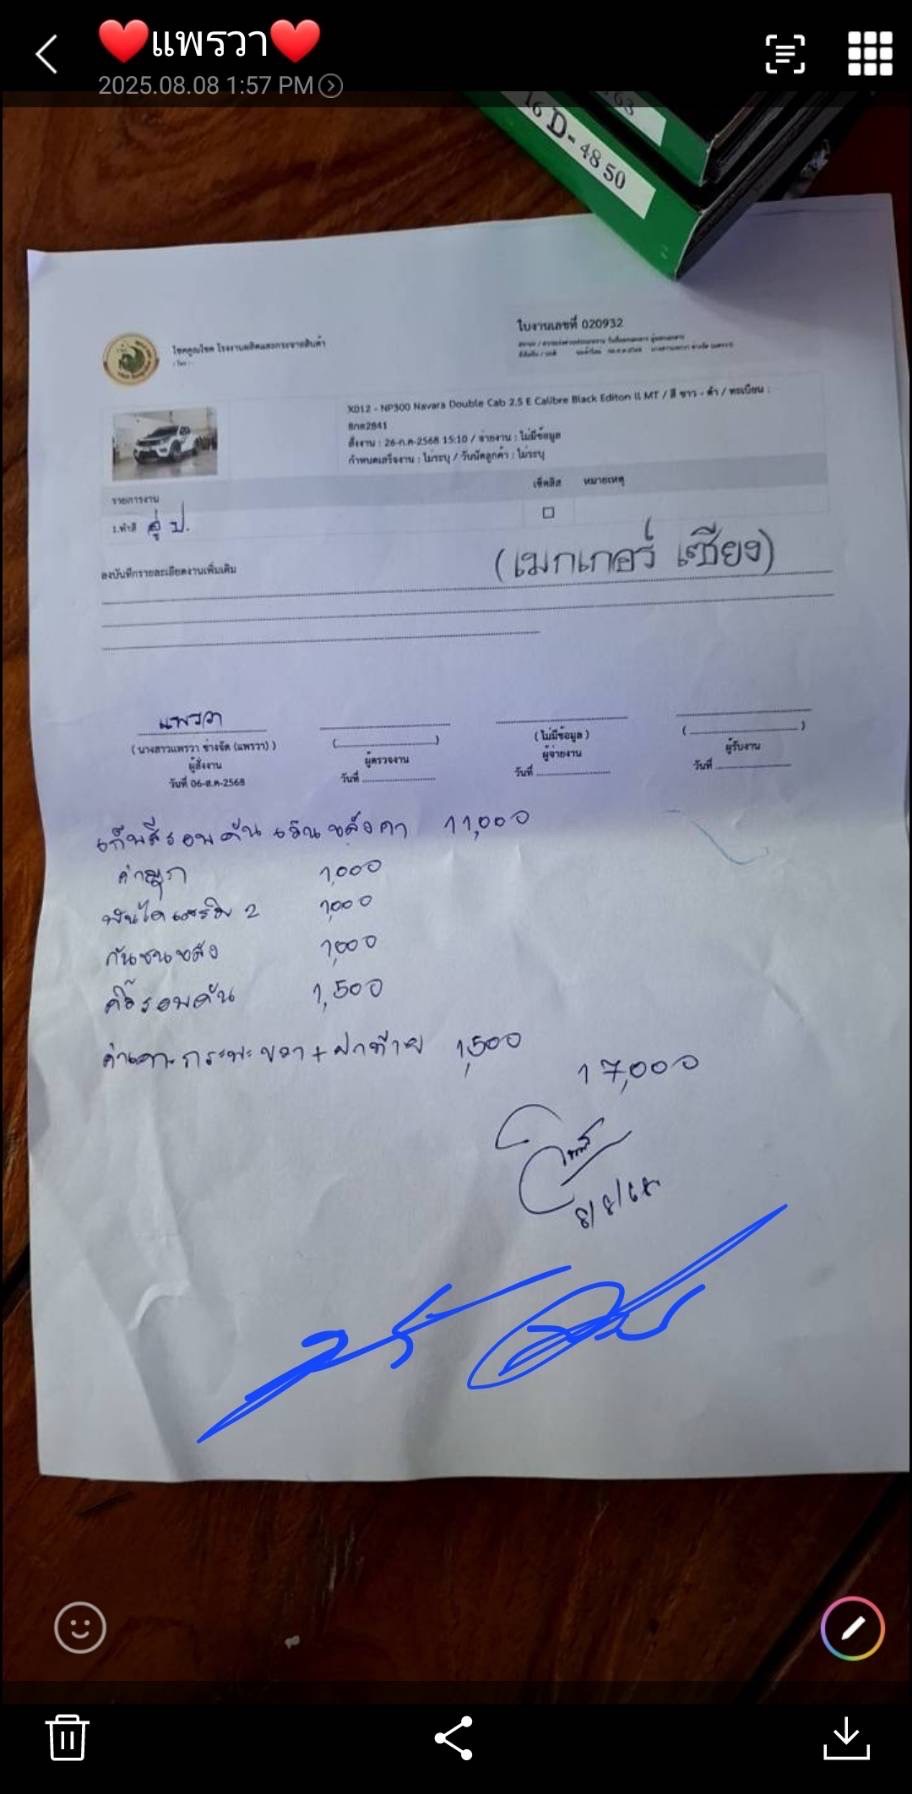 ❤️แพรวา❤️
2025.08.08 1:57 PM
16 D-4850
โชคคูณโชค โรงงานผลิตและกระจายสินค้า
ใบงานเลขที่ 020932
X012 - NP300 Navara Double Cab 2.5 E Calibre Black Editon ll MT / สี ขาว - ดำ / ทะเบียน :
8กด2841
สั่งงาน : 26-ก.ค-2568 15:10 / จ่ายงาน : ไม่มีข้อมูล
กำหนดเสร็จงาน : ไม่ระบุ / วันนัดลูกค้า : ไม่ระบุ
รายการงาน เช็คลิส หมายเหตุ
1.ทำสี อู่ ป.
ลงบันทึกรายละเอียดงานเพิ่มเติม
(เมกเกอร์ เซียง)
แพรวา
(นางสาวแพรวา ช่างจัด (แพรวา))
ผู้สั่งงาน
วันที่ 06-ส.ค-2568
ผู้ตรวจงาน
วันที่
(ไม่มีข้อมูล)
ผู้จ่ายงาน
วันที่
ผู้รับงาน
วันที่
เก็บสีรอบคัน เว้นหลังคา 11,000
1,000
2 1,000
กันชนหลัง 1,000
คิ้วรอบคัน 1,500
ค่าเคาะกระบะขวา + ฝาท้าย 1,500
17,000
8/8/68